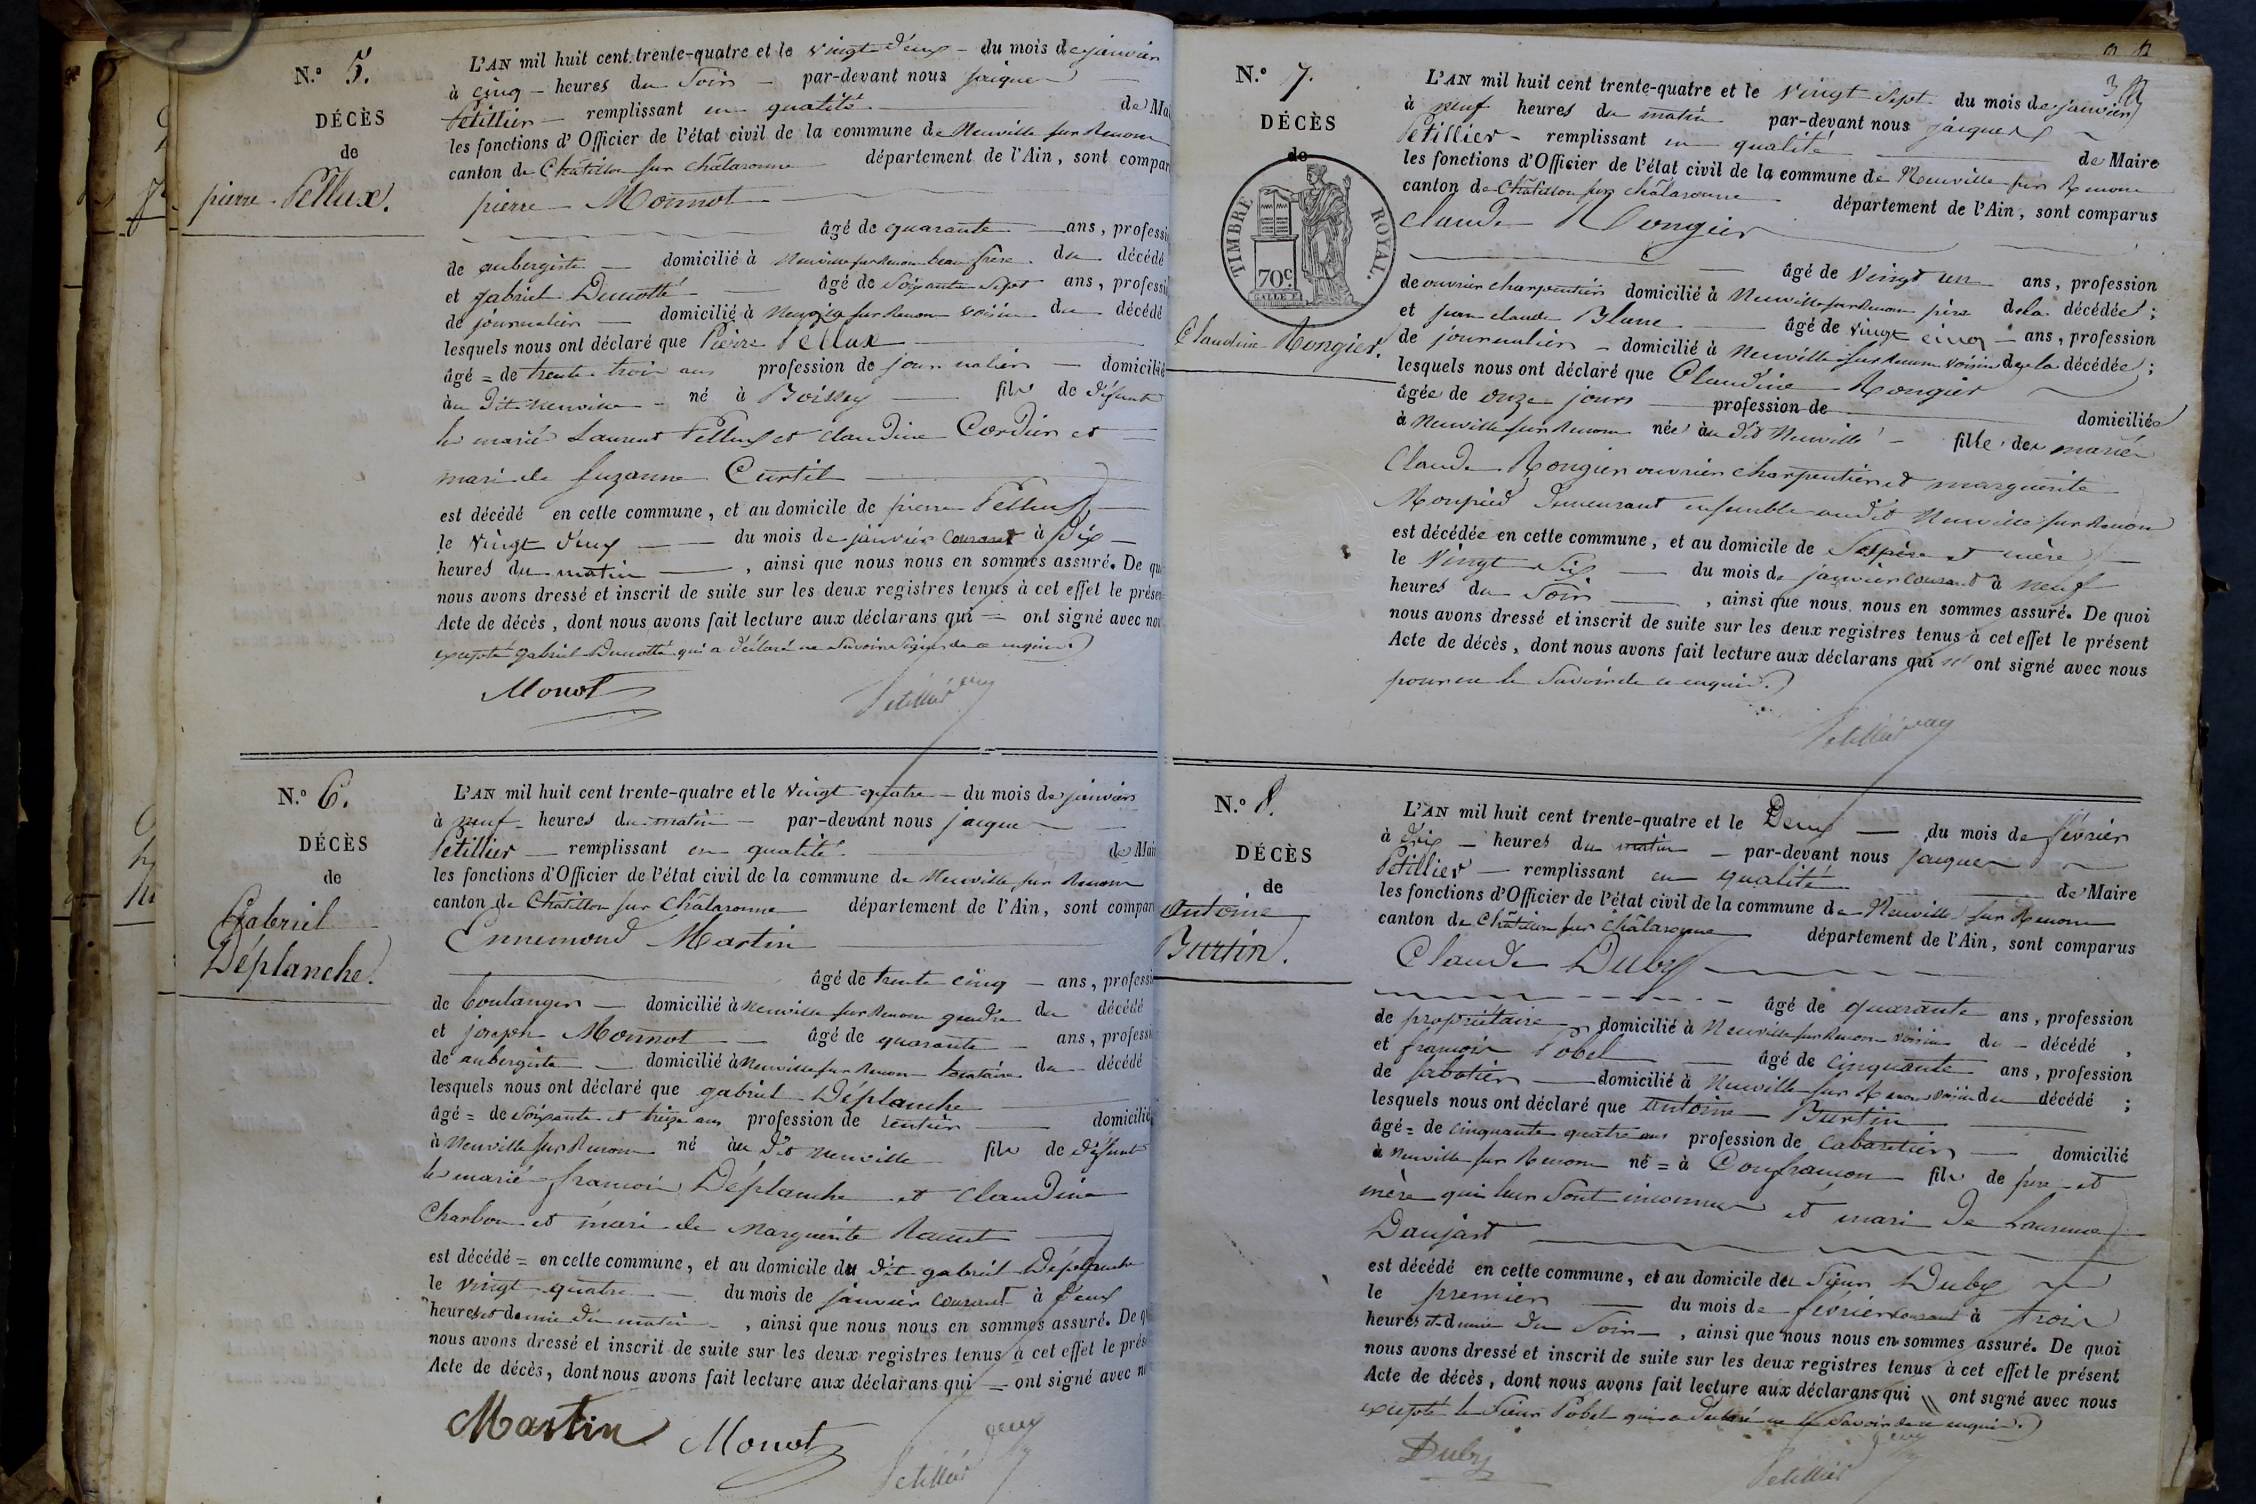 N.° 5.
DÉCÈS
de
pierre Pellux.
L'AN mil huit cent trente-quatre et le vingt deux du mois de janvier
à cinq heures du soir par-devant nous jacques
Petillier remplissant en qualité de Mai
les fonctions d'Officier de l'état civil de la commune de Neuville sur Renom
canton de Châtillon sur Châlaronne département de l'Ain, sont compar
pierre Monnot
âgé de quarante ans, professi
de aubergiste domicilié à Neuville sur Renom beau frère du décédé
et gabriel Dumotté âgé de soixante sept ans, professi
de journalier domicilié à Neuville sur Renom voisin du décédé
lesquels nous ont déclaré que Pierre Pellux
âgé = de trente trois ans profession de journalier domicilié
au dit Neuville né à Boissey fils de défunts
les mariés Laurent Pellux et claudine Cordier et
mari de Suzanne Curtil
est décédé en cette commune, et au domicile de pierre Pellux
le vingt deux du mois de janvier courant à dix
heures du matin, ainsi que nous nous en sommes assuré. De qu
nous avons dressé et inscrit de suite sur les deux registres tenus à cet effet le prése
Acte de décès, dont nous avons fait lecture aux déclarans qui = ont signé avec nou
excepté gabriel Dumotté qui a déclaré ne savoir signer de ce enquis.
Monot
Petillier
N.° 6.
DÉCÈS
de
Gabriel
Déplanche.
L'AN mil huit cent trente-quatre et le vingt quatre du mois de janvier
à neuf heures du matin par-devant nous jacques
Petillier remplissant en qualité de Mai
les fonctions d'Officier de l'état civil de la commune de Neuville sur Renom
canton de Châtillon sur Châlaronne département de l'Ain, sont compar
Ennemond Martin
âgé de trente cinq ans, professi
de boulanger domicilié à Neuville sur Renom gendre du décédé
et joseph Monnot âgé de quarante ans, professi
de aubergiste domicilié à Neuville sur Renom du décédé
lesquels nous ont déclaré que gabriel Déplanche
âgé = de soixante et treize ans profession de rentier domicilié
à Neuville sur Renom né au dit Neuville fils de défunts
les mariés françois Déplanche et claudine
Charbon et mari de Marguerite
est décédé = en cette commune, et au domicile du dit gabriel Déplanche
le vingt quatre du mois de janvier courant à deux
heures et demie du matin, ainsi que nous nous en sommes assuré. De q
nous avons dressé et inscrit de suite sur les deux registres tenus à cet effet le prés
Acte de décès, dont nous avons fait lecture aux déclarans qui = ont signé avec n
Martin Monot
Petillier
N.° 7.
DÉCÈS
de
TIMBRE ROYAL.
70c
Claudine Rongier.
L'AN mil huit cent trente-quatre et le vingt sept du mois de janvier
à neuf heures du matin par-devant nous jacques
Petillier remplissant en qualité de Maire
les fonctions d'Officier de l'état civil de la commune de Neuville sur Renom
canton de Châtillon sur Châlaronne département de l'Ain, sont comparus
Claude Rongier
âgé de vingt un ans, profession
de ouvrier charpentier domicilié à Neuville sur Renom père de la décédée;
et jean claude Blanc âgé de vingt cinq ans, profession
de journalier domicilié à Neuville sur Renom voisin de la décédée;
lesquels nous ont déclaré que Claudine Rongier
âgée de onze jours profession de domiciliée
à Neuville sur Renom née au dit Neuville fille des mariés
Claude Rongier ouvrier charpentier et marguerite
Monpied demeurant ensemble audit Neuville sur Renom
est décédée en cette commune, et au domicile de ses père et mère
le vingt six du mois de janvier courant à neuf
heures du soir, ainsi que nous nous en sommes assuré. De quoi
nous avons dressé et inscrit de suite sur les deux registres tenus à cet effet le présent
Acte de décès, dont nous avons fait lecture aux déclarans qui n' ont signé avec nous
pour ne le savoir de ce enquis.
Petillier
N.° 8.
DÉCÈS
de
Antoine
Burtin.
L'AN mil huit cent trente-quatre et le Deux du mois de février
à dix heures du matin par-devant nous jacques
Petillier remplissant en qualité de Maire
les fonctions d'Officier de l'état civil de la commune de Neuville sur Renom
canton de Châtillon sur Châlaronne département de l'Ain, sont comparus
Claude Duby
âgé de quarante ans, profession
de propriétaire domicilié à Neuville sur Renom voisin du décédé,
et françois Pobel âgé de cinquante ans, profession
de sabotier domicilié à Neuville sur Renom voisin du décédé;
lesquels nous ont déclaré que antoine Burtin
âgé = de cinquante quatre ans profession de cabaretier domicilié
à Neuville sur Renom né = à Confrançon fils de père et
mère qui leur sont inconnus et mari de Laurence
Daujard
est décédé en cette commune, et au domicile du sieur Duby
le premier du mois de février courant à trois
heures et demie du soir, ainsi que nous nous en sommes assuré. De quoi
nous avons dressé et inscrit de suite sur les deux registres tenus à cet effet le présent
Acte de décès, dont nous avons fait lecture aux déclarans qui = ont signé avec nous
excepté le sieur Pobel qui a déclaré ne le savoir de ce enquis.
Duby
Petillier